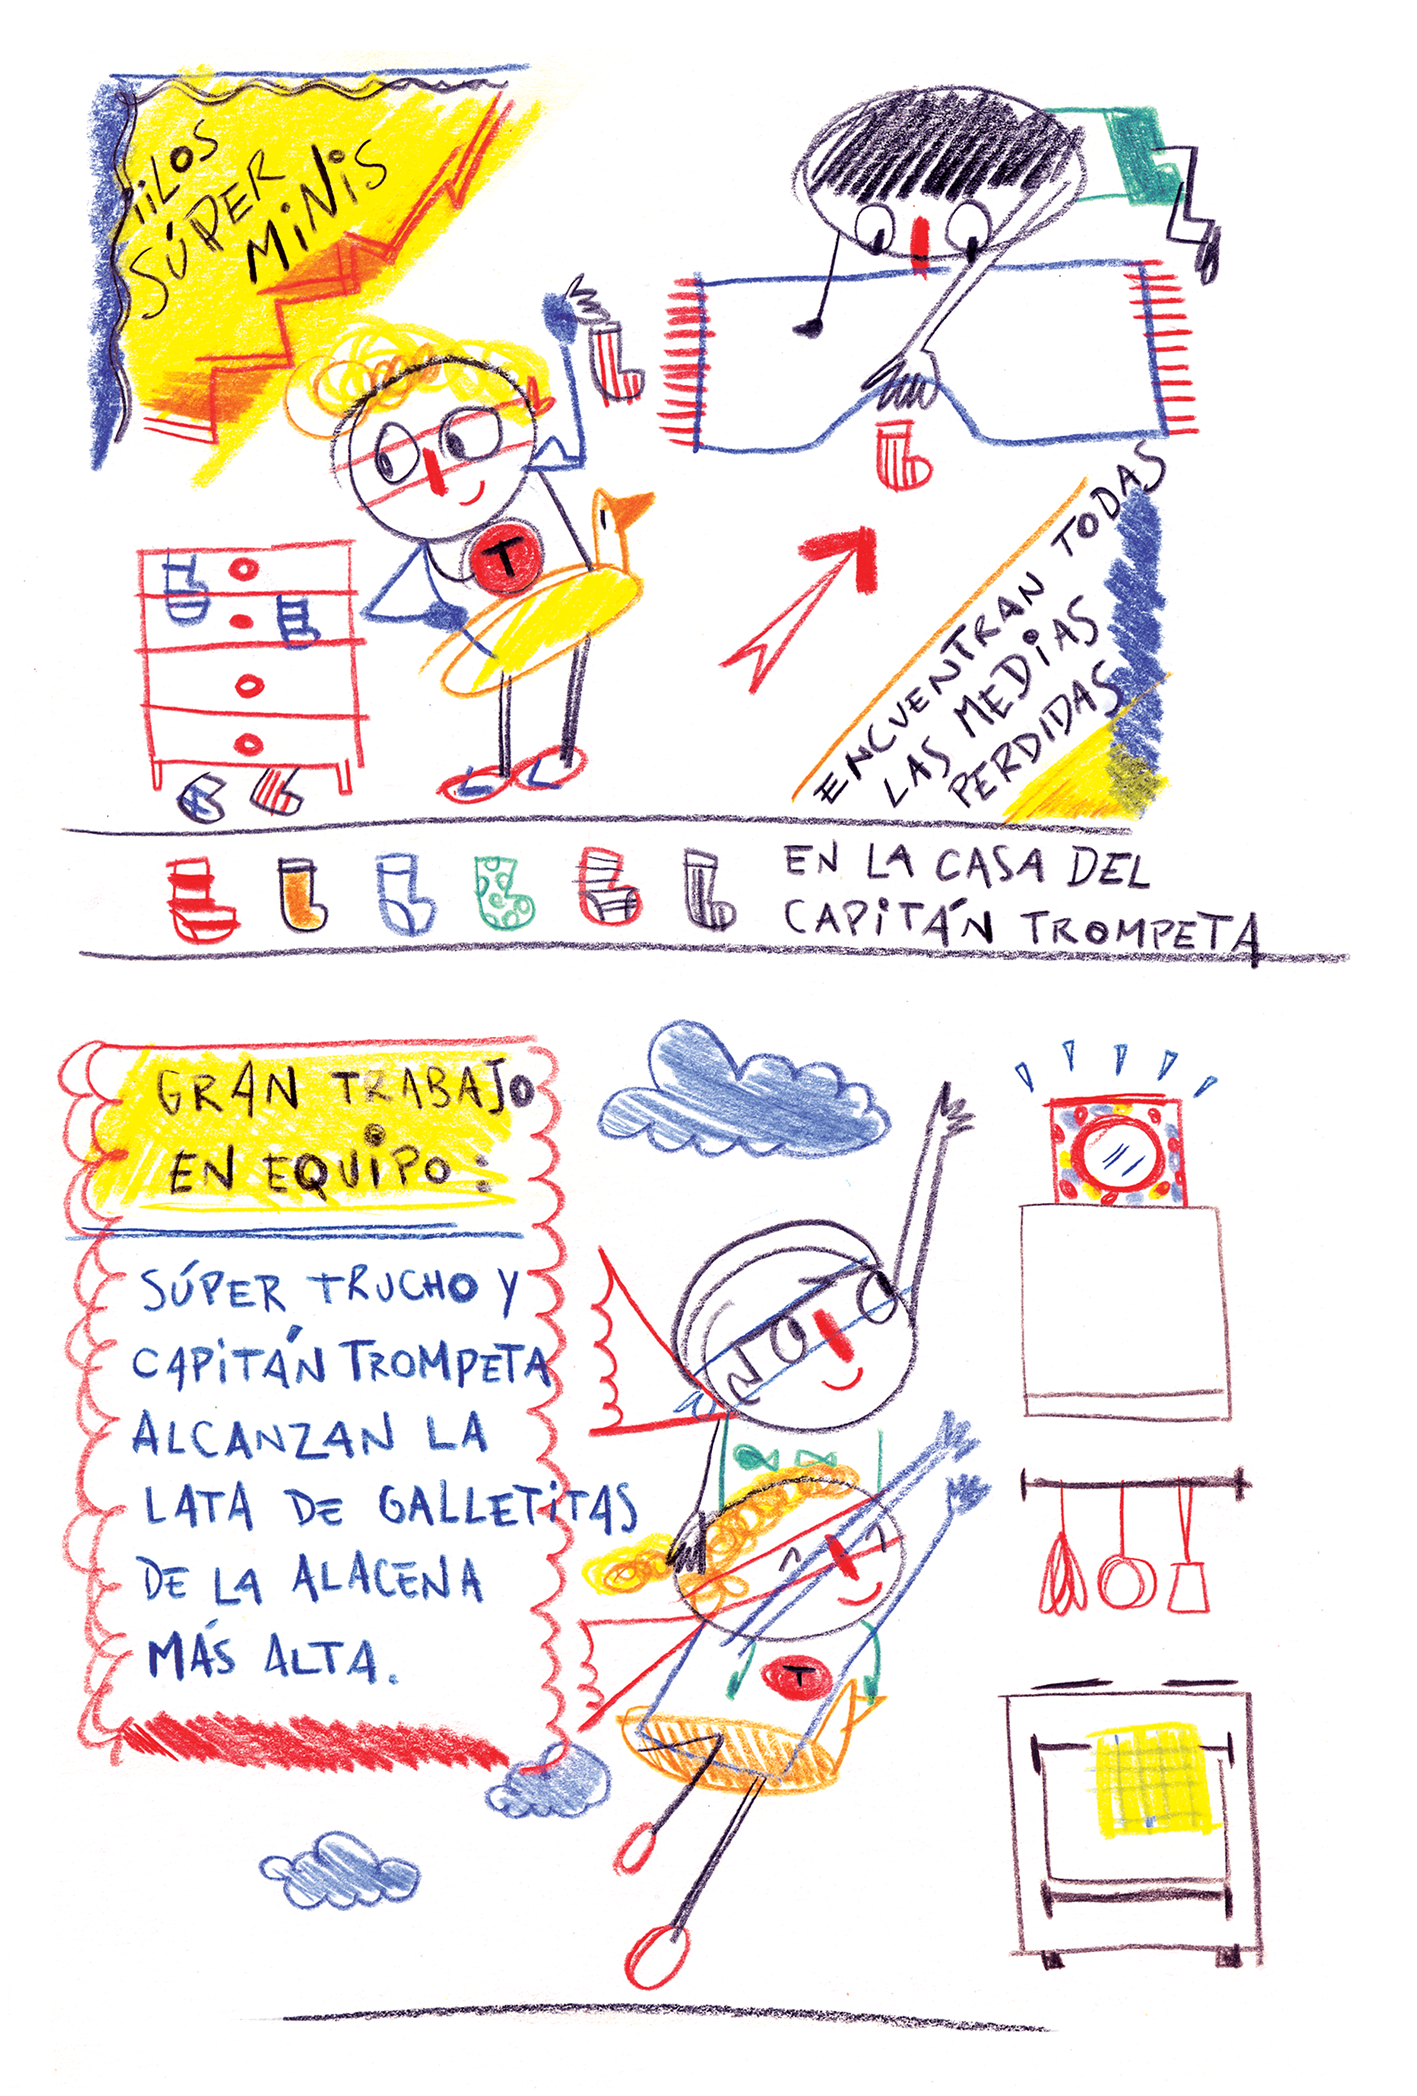 ¡¡LOS
SÚPER
MINIS
T
ENCUENTRAN TODAS
LAS MEDIAS
PERDIDAS
EN LA CASA DEL
CAPITÁN TROMPETA
GRAN TRABAJO
EN EQUIPO:
SÚPER TRUCHO Y
CAPITÁN TROMPETA
ALCANZAN LA
LATA DE GALLETITAS
DE LA ALACENA
MÁS ALTA.
T